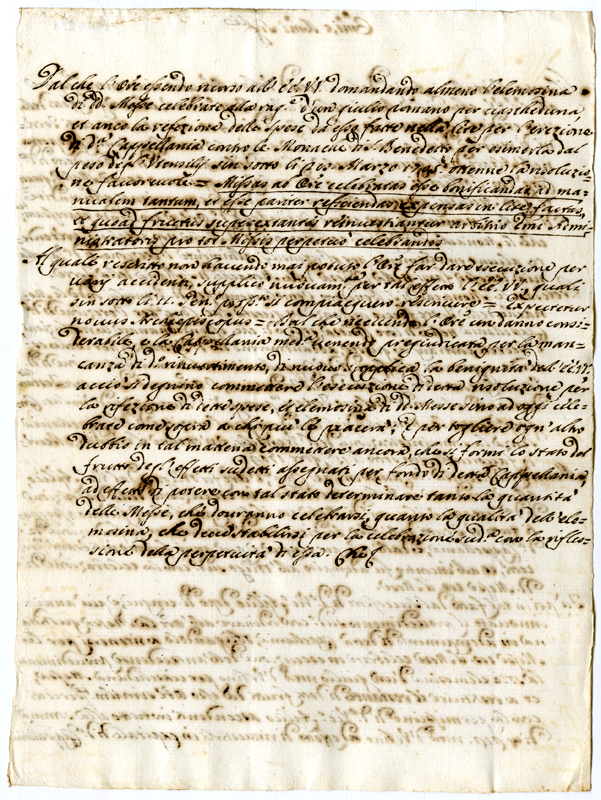 Dal che l'Ore essendo ricorso all' EE. VV. domandando almeno l'elemosina
di dd. Messe celebrate alla rag.e d'un giulio romano per ciascheduna,
et anco la refezione delle spese da esse fatte nella lite per l'erezione
di d.a Cappellania contro le Monache di S. Benedetto per esimerla dal
peso degl'Utensili sin sotto li Marzo ottenne la risoluzio-
ne favorevole = Missas ab Ore celebratas esse bonificandas ad ma-
nualem tantum, et esse pariter reficiendas expensas in lite factas,
et quoad fructus superextantes reinvestiantur arbitrio Emi Admi-
nistratoris pro tot Missis perpetuo celebrandis
Al quale rescritto non havendo mai potuto l'Ore far dare esecuzione per
varij accidenti, supplicò nuovam.e per tal effetto l'EE. VV. quali
sin sotto li 11. Gen. si compiacquero rescrivere = Expectetur
novus Archiepiscopus = Dal che ricevendo l'Ore un danno consi-
derabile, e la Cappellania med.a venendo pregiudicata per la man-
canza di d.o rinvestimento, di nuovo supplica la benignità dell' EE. VV.
acciò si degnino commettere l'esecuzione di detta risoluzione per
la refezione di dette spese, et elemosina di dd. Messe sino ad oggi cele-
brate come sopra a chi più le piacerà; E per togliere ogn'altro
dubbio in tal materia commettere ancora, che si formi lo stato del
frutto degl'effetti sudetti assegnati per fondo di detta Cappellania,
ad effetto di potere con tal stato determinare tanto la quantità
delle Messe, che dovranno celebrarsi, quanto la qualità dell'ele-
mosina, che deve stabilirsi per la celebrazione sud.a con la rifles-
sione della perpetuità di essa. Che